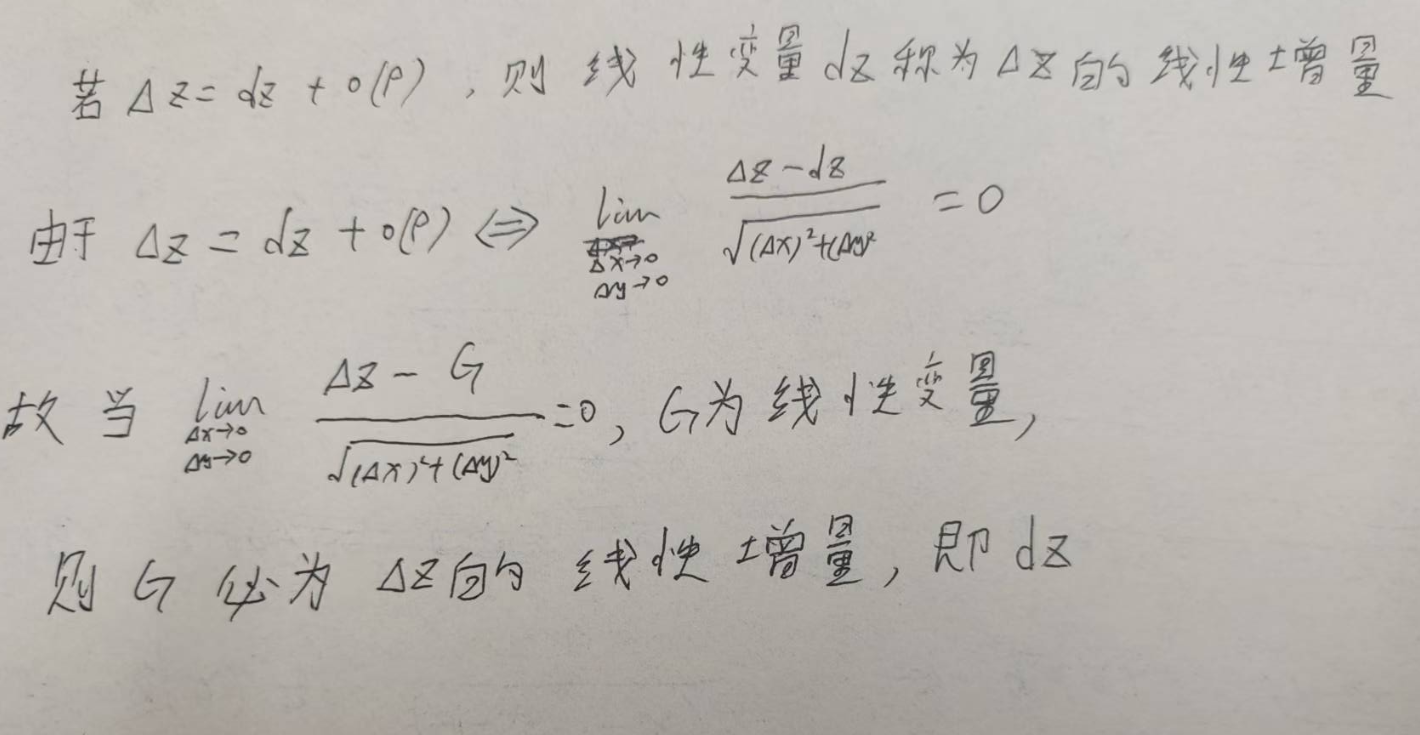 若 Δz = dz + o(ρ) , 则 线性变量 dz 称为 Δz 的 线性增量
由于 Δz = dz + o(ρ) ⇔ lim_{Δx→0, Δy→0} (Δz - dz) / √((Δx)² + (Δy)²) = 0
故 当 lim_{Δx→0, Δy→0} (Δz - G) / √((Δx)² + (Δy)²) = 0, G 为 线性变量,
则 G 必为 Δz 的 线性增量, 即 dz